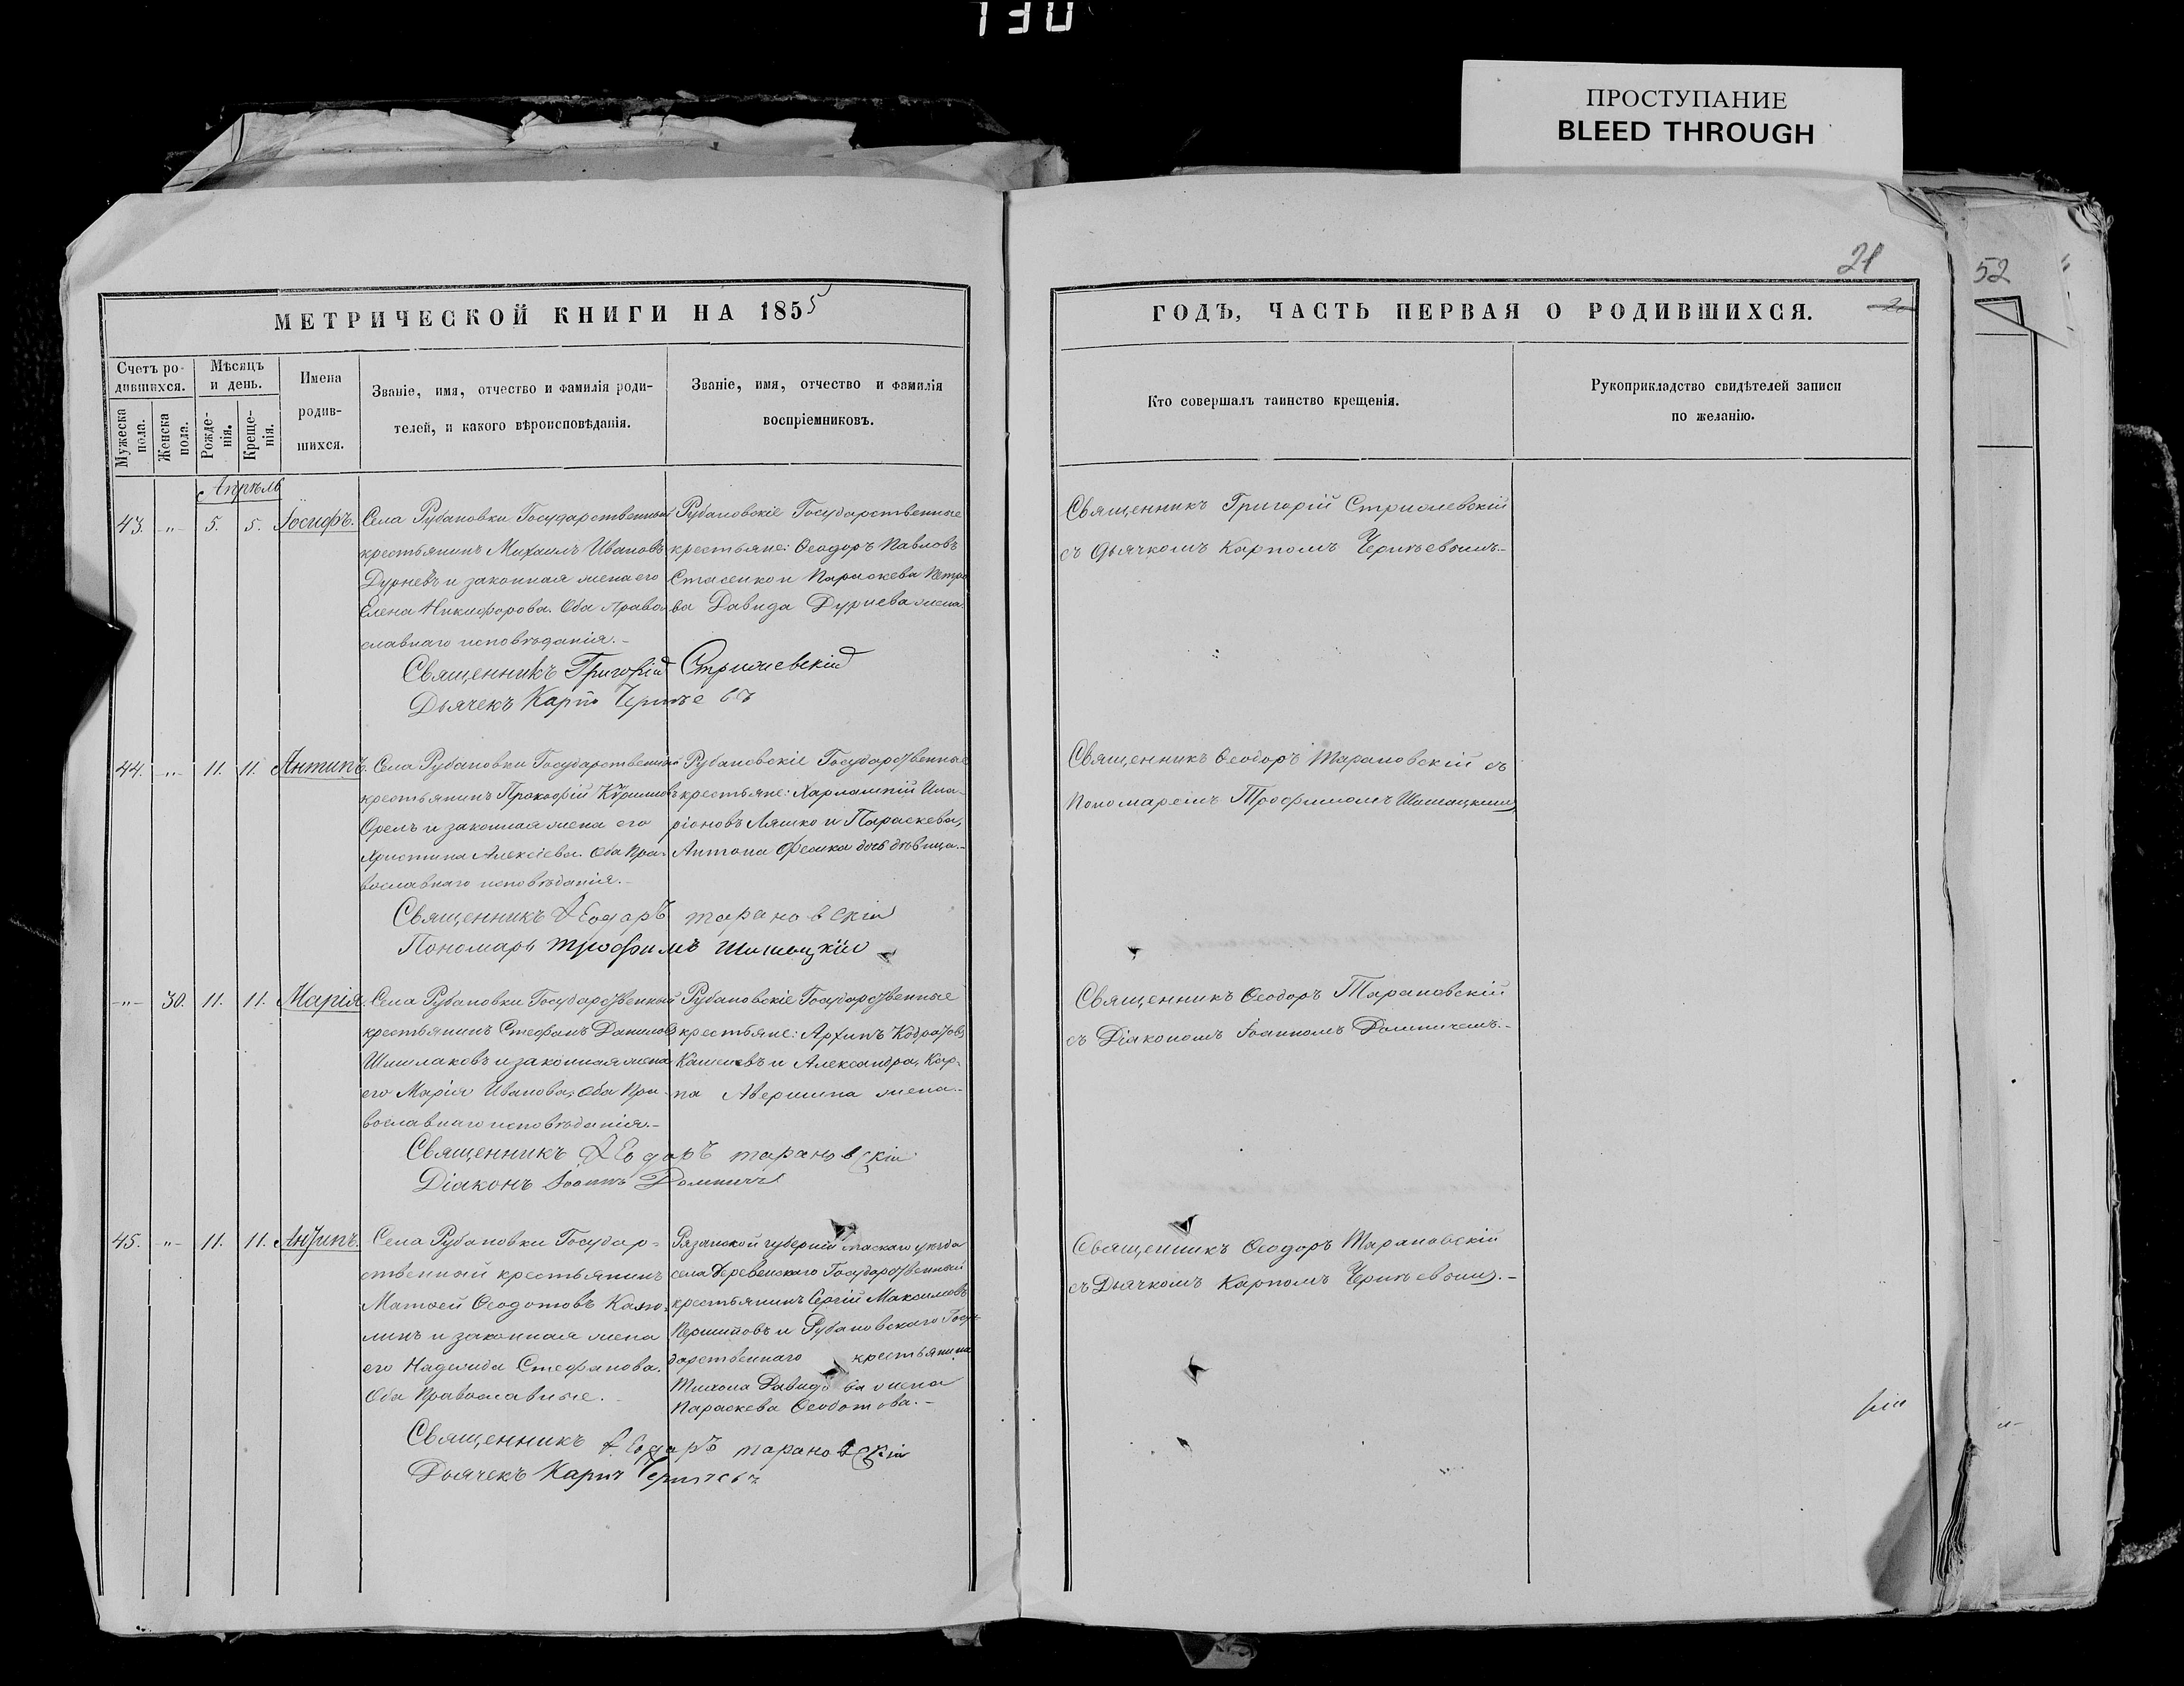 130
ПРОСТУПАНИЕ
BLEED THROUGH
21
52
МЕТРИЧЕСКОЙ КНИГИ НА 1855
Счетъ родившихся.
Мужеска пола.
Женска пола.
Мѣсяцъ и день.
Рожденія.
Крещенія.
Имена родившихся.
Званіе, имя, отчество и фамилія родителей, и какого вѣроисповѣданія.
Званіе, имя, отчество и фамилія воспріемниковъ.
Апрѣль
43. -"- 5. 5. Іосифъ.
Села Рубановки Государственный
крестьянинъ Михаилъ Ивановъ
Дурневъ и законная жена его
Елена Никифорова. Оба право-
славнаго исповѣданія.-
Рубановскіе Государственные
крестьяне: Ѳеодоръ Павловъ
Стасенко и Параскева Петро
ва Давида Дурнева жена.
Священникъ Григорій
Дьячекъ Карпъ
44. -"- 11. 11. Антипъ.
Села Рубановки Государственный
крестьянинъ Прокофій
Орелъ и законная жена его
Христина Алексіева. Оба Пра-
вославнаго исповѣданія.-
Рубановскіе Государственные
крестьяне: Харлампій Ила-
ріоновъ Ляшко и Параскева,
Антона Фесика дочь дѣвица.-
Священникъ Ѳеодоръ Тарановскій
Пономарь Трофимъ
-"- 30. 11. 11. Марія.
Села Рубановки Государственный
крестьянинъ Стефанъ Даниловъ
Шишлаковъ и законная жена
его Марія Иванова, Оба Пра-
вославнаго исповѣданія.-
Рубановскіе Государственные
крестьяне: Архипъ Кодратовъ
и Александра, Кар-
па Авершина жена.-
Священникъ Ѳеодоръ Тарановскій
Діаконъ Іоаннъ
45. -"- 11. 11. Антипъ.
Села Рубановки Государ-
ственный крестьянинъ
Матѳей Ѳеодотовъ
и законная жена
его Надежда Стефанова.
Оба Православные.-
Рязанской губерніи уѣзда
села Деревенскаго Государственный
крестьянинъ Сергій Максимовъ
и Рубановскаго Госу-
дарственнаго крестьянина
Тихона Давидова жена
Параскева Ѳеодотова.-
Священникъ Ѳеодоръ Тарановскій
Дьячекъ Карпъ
ГОДЪ, ЧАСТЬ ПЕРВАЯ О РОДИВШИХСЯ.
Кто совершалъ таинство крещенія.
Рукоприкладство свидѣтелей записи
по желанію.
Священникъ Григорій
съ Дьячкомъ Карпомъ
Священникъ Ѳеодоръ Тарановскій съ
Пономаремъ Трофимомъ
Священникъ Ѳеодоръ Тарановскій
съ Діакономъ Іоанномъ
Священникъ Ѳеодоръ Тарановскій
съ Дьячкомъ Карпомъ